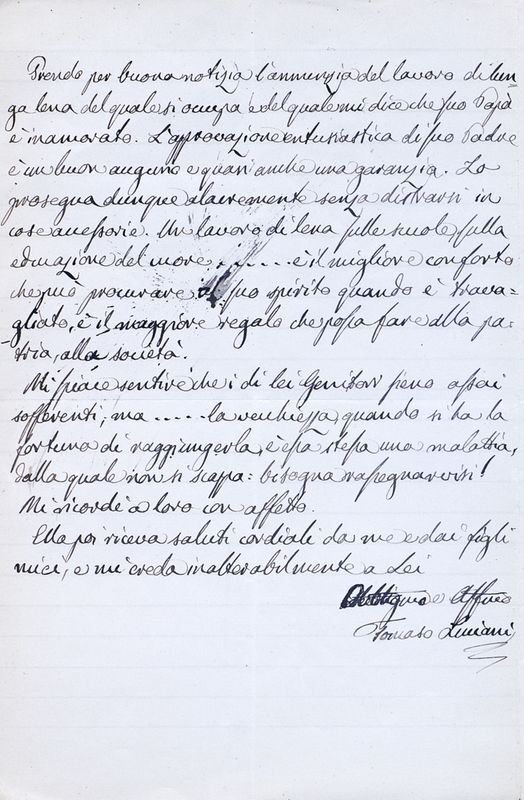 Prendo per buona notizia l'annunzia del lavoro di lun-
ga lena del quale si occupa e del quale mi dice che suo Papà
è inamorato. L'approvazione entusiastica di suo Padre
è un buon augurio e quasi anche una garanzia. Lo
prosegua dunque alacremente senza distrarsi in
cose accessorie. Un lavoro di lena sulle scuole, sulla
educazione del cuore ...... è il migliore conforto
che può procurare al suo spirito quando è trava-
gliato, è il maggiore regalo che possa fare alla pa-
tria, alla società.
Mi spiace sentire che i di lei Genitori sieno assai
sofferenti; ma ..... la vecchiezza, quando si ha la
fortuna di raggiungerla, è essa stessa una malattia,
dalla quale non si scapa: bisogna rassegnarvisi!
Mi ricordi a loro con affetto.
Ella poi riceva saluti cordiali da me e dai figli
miei, e mi creda inalterabilmente a Lei
Obbligmo e Affmo
Tomaso Luciani